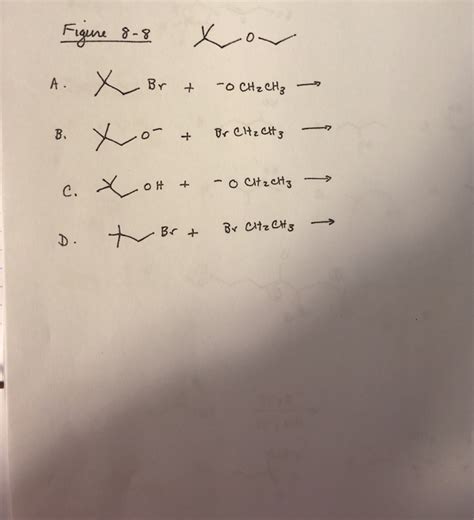 Figure 8-8
O
A. Br + -O CH2CH3 →
B. O- + Br CH2CH3 →
C. OH + -O CH2CH3 →
D. Br + Br CH2CH3 →